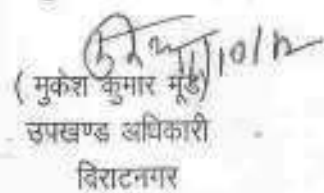 ( मुकेश कुमार मूंड)
उपखण्ड अधिकारी
विराटनगर